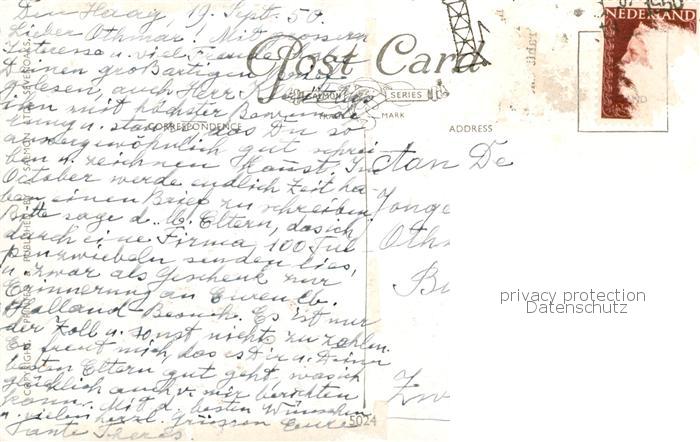 Den Haag, 19 Sept. 50.
Lieber Othmar! Mit grossem
Interesse u. viel Freude habe
Deinen großartigen Brief
gelesen, auch Herr
ihn mit höchster Bewunde
rung u. staunen das Du so
aussergewöhnlich gut schrei
ben u. zeichnen kannst. Im
October werde endlich Zeit ha-
ben einen Brief zu schreiben.
Bitte sage d. lb. Eltern, das ich
durch eine Firma, 100 Tul
penzwiebeln senden lies,
u. zwar als Geschenk zur
Erinnerung an Euren lb.
Holland-Besuch. Es ist nur
der Zoll u. sonst nichts zu zahlen.
Es freut mich, das es Dir u. Deinen
besten Eltern gut geht was ich
glücklich auch v. mir berichten
kann. Mit d. besten Wünschen
u. vielen herzl. Grüssen Eure
Tante Theres
Post Card
SALMON SERIES
TRADE MARK
CORRESPONDENCE
ADDRESS
COPYRIGHT. PRINTED & PUBLISHED BY J. SALMON LTD., SEVENOAKS.
5024
NEDERLAND
Aan De
Jonge
Othm
B
Zw
privacy protection
Datenschutz